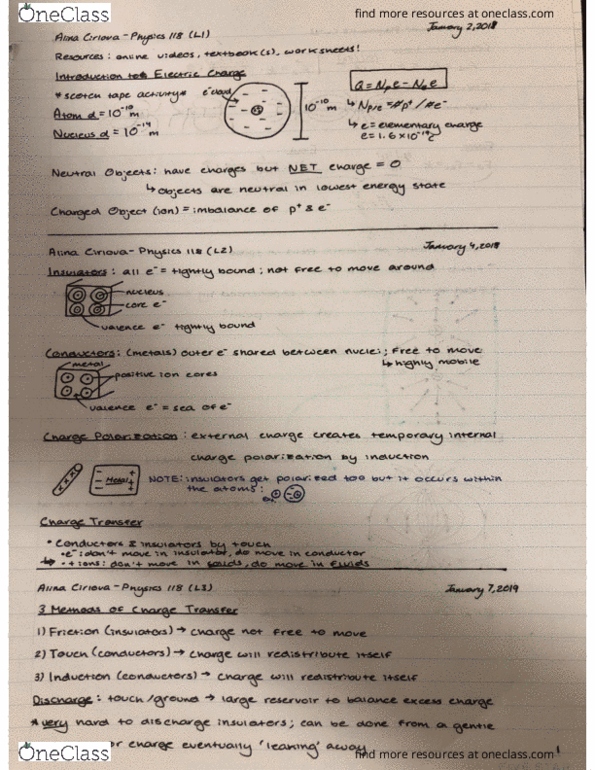 OneClass
find more resources at oneclass.com
January 2, 2018
Alina Ciriova - Physics 118 (L1)
Resources: online videos, textbook(s), worksheets!
Introduction to Electric Charge
* scotch tape activity *
e⁻ cloud
Atom d = 10⁻¹⁰ m
Nucleus d = 10⁻¹⁴ m
10⁻¹⁰ m
Q = Npe - Nee
↳ Np/e = # p⁺ / # e⁻
↳ e = elementary charge
e = 1.6 × 10⁻¹⁹ C
Neutral Objects: have charges but NET charge = 0
↳ objects are neutral in lowest energy state
Charged Object (ion) = imbalance of p⁺ & e⁻
Alina Ciriova - Physics 118 (L2)
January 4, 2019
Insulators: all e⁻ = tightly bound; not free to move around
nucleus
core e⁻
valence e⁻ tightly bound
Conductors: (metals) outer e⁻ shared between nuclei; free to move
↳ highly mobile
metal
positive ion cores
valence e⁻ = sea of e⁻
Charge Polarization: external charge creates temporary internal
charge polarization by induction
Metal
NOTE: insulators get polarized too but it occurs within
the atoms:
Charge Transfer
• Conductors & insulators by touch
• e⁻: don't move in insulator, do move in conductor
↳ • + ions: don't move in solids, do move in fluids
Alina Ciriova - Physics 118 (L3)
January 7, 2019
3 Methods of Charge Transfer
1) Friction (insulators) → charge not free to move
2) Touch (conductors) → charge will redistribute itself
3) Induction (conductors) → charge will redistribute itself
Discharge: touch/ground → large reservoir to balance excess charge
* very hard to discharge insulators; can be done from a gentle
or charge eventually 'leaking' away
OneClass
find more resources at oneclass.com
1